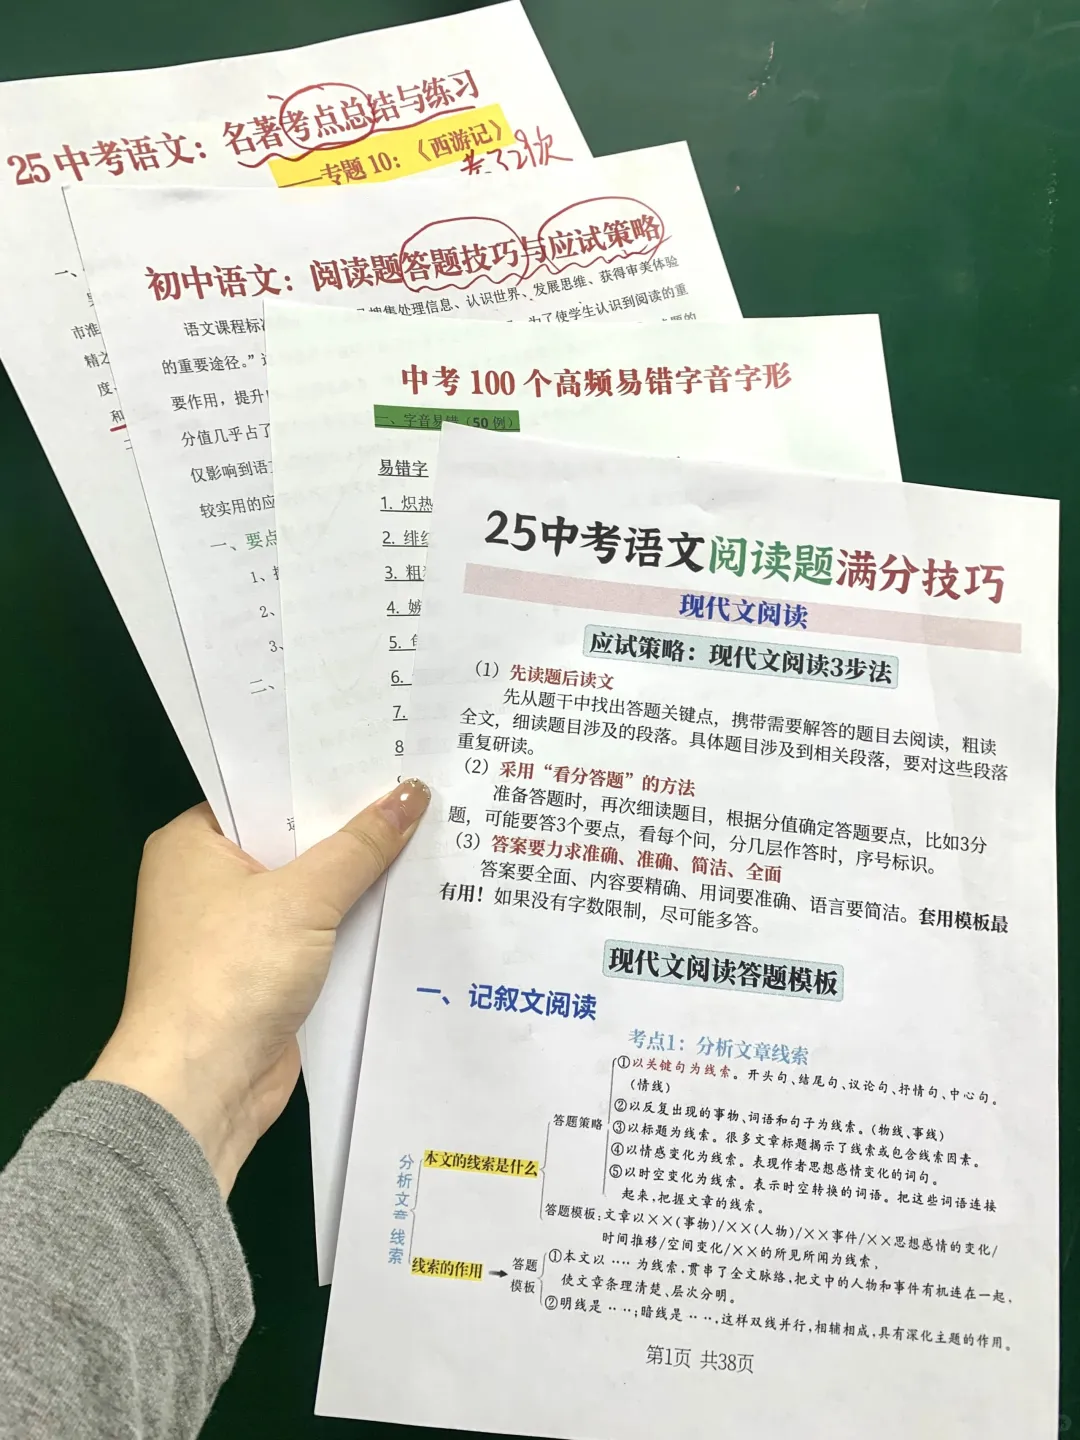 25中考语文：名著考点总结与练习
——专题10：《西游记》
考了29次
一、
市淮
精之
度、
和
初中语文：阅读题答题技巧与应试策略
语文课程标准 搜集处理信息、认识世界、发展思维、获得审美体验
的重要途径。” 为了使学生认识到阅读的重
要作用，提升
分值几乎占了
仅影响到语
较实用的应
一、要点
1、
2、
3、
二、
中考100个高频易错字音字形
一、字音易错（50例）
易错字
1. 炽热
2. 绯红
3. 粗
4. 嫉
5.
6.
7.
8
25中考语文阅读题满分技巧
现代文阅读
应试策略：现代文阅读3步法
（1）先读题后读文
先从题干中找出答题关键点，携带需要解答的题目去阅读，粗读
全文，细读题目涉及的段落。具体题目涉及到相关段落，要对这些段落
重复研读。
（2）采用“看分答题”的方法
准备答题时，再次细读题目，根据分值确定答题要点，比如3分
题，可能要答3个要点，看每个问，分几层作答时，序号标识。
（3）答案要力求准确、准确、简洁、全面
答案要全面、内容要精确、用词要准确、语言要简洁。套用模板最
有用！如果没有字数限制，尽可能多答。
现代文阅读答题模板
一、记叙文阅读
考点1：分析文章线索
①以关键句为线索。开头句、结尾句、议论句、抒情句、中心句。
（情线）
②以反复出现的事物、词语和句子为线索。（物线、事线）
答题策略
③以标题为线索。很多文章标题揭示了线索或包含线索因素。
④以情感变化为线索。表现作者思想感情变化的词句。
本文的线索是什么
⑤以时空变化为线索。表示时空转换的词语。把这些词语连接
起来，把握文章的线索。
分析文章线索
答题模板：文章以××(事物)/××(人物)/××事件/××思想感情的变化/
时间推移/空间变化/××的所见所闻为线索，
线索的作用
答题模板
①本文以 ···· 为线索，贯串了全文脉络，把文中的人物和事件有机连在一起，
使文章条理清楚、层次分明。
②明线是 ····；暗线是 ····，这样双线并行，相辅相成，具有深化主题的作用。
第1页 共38页